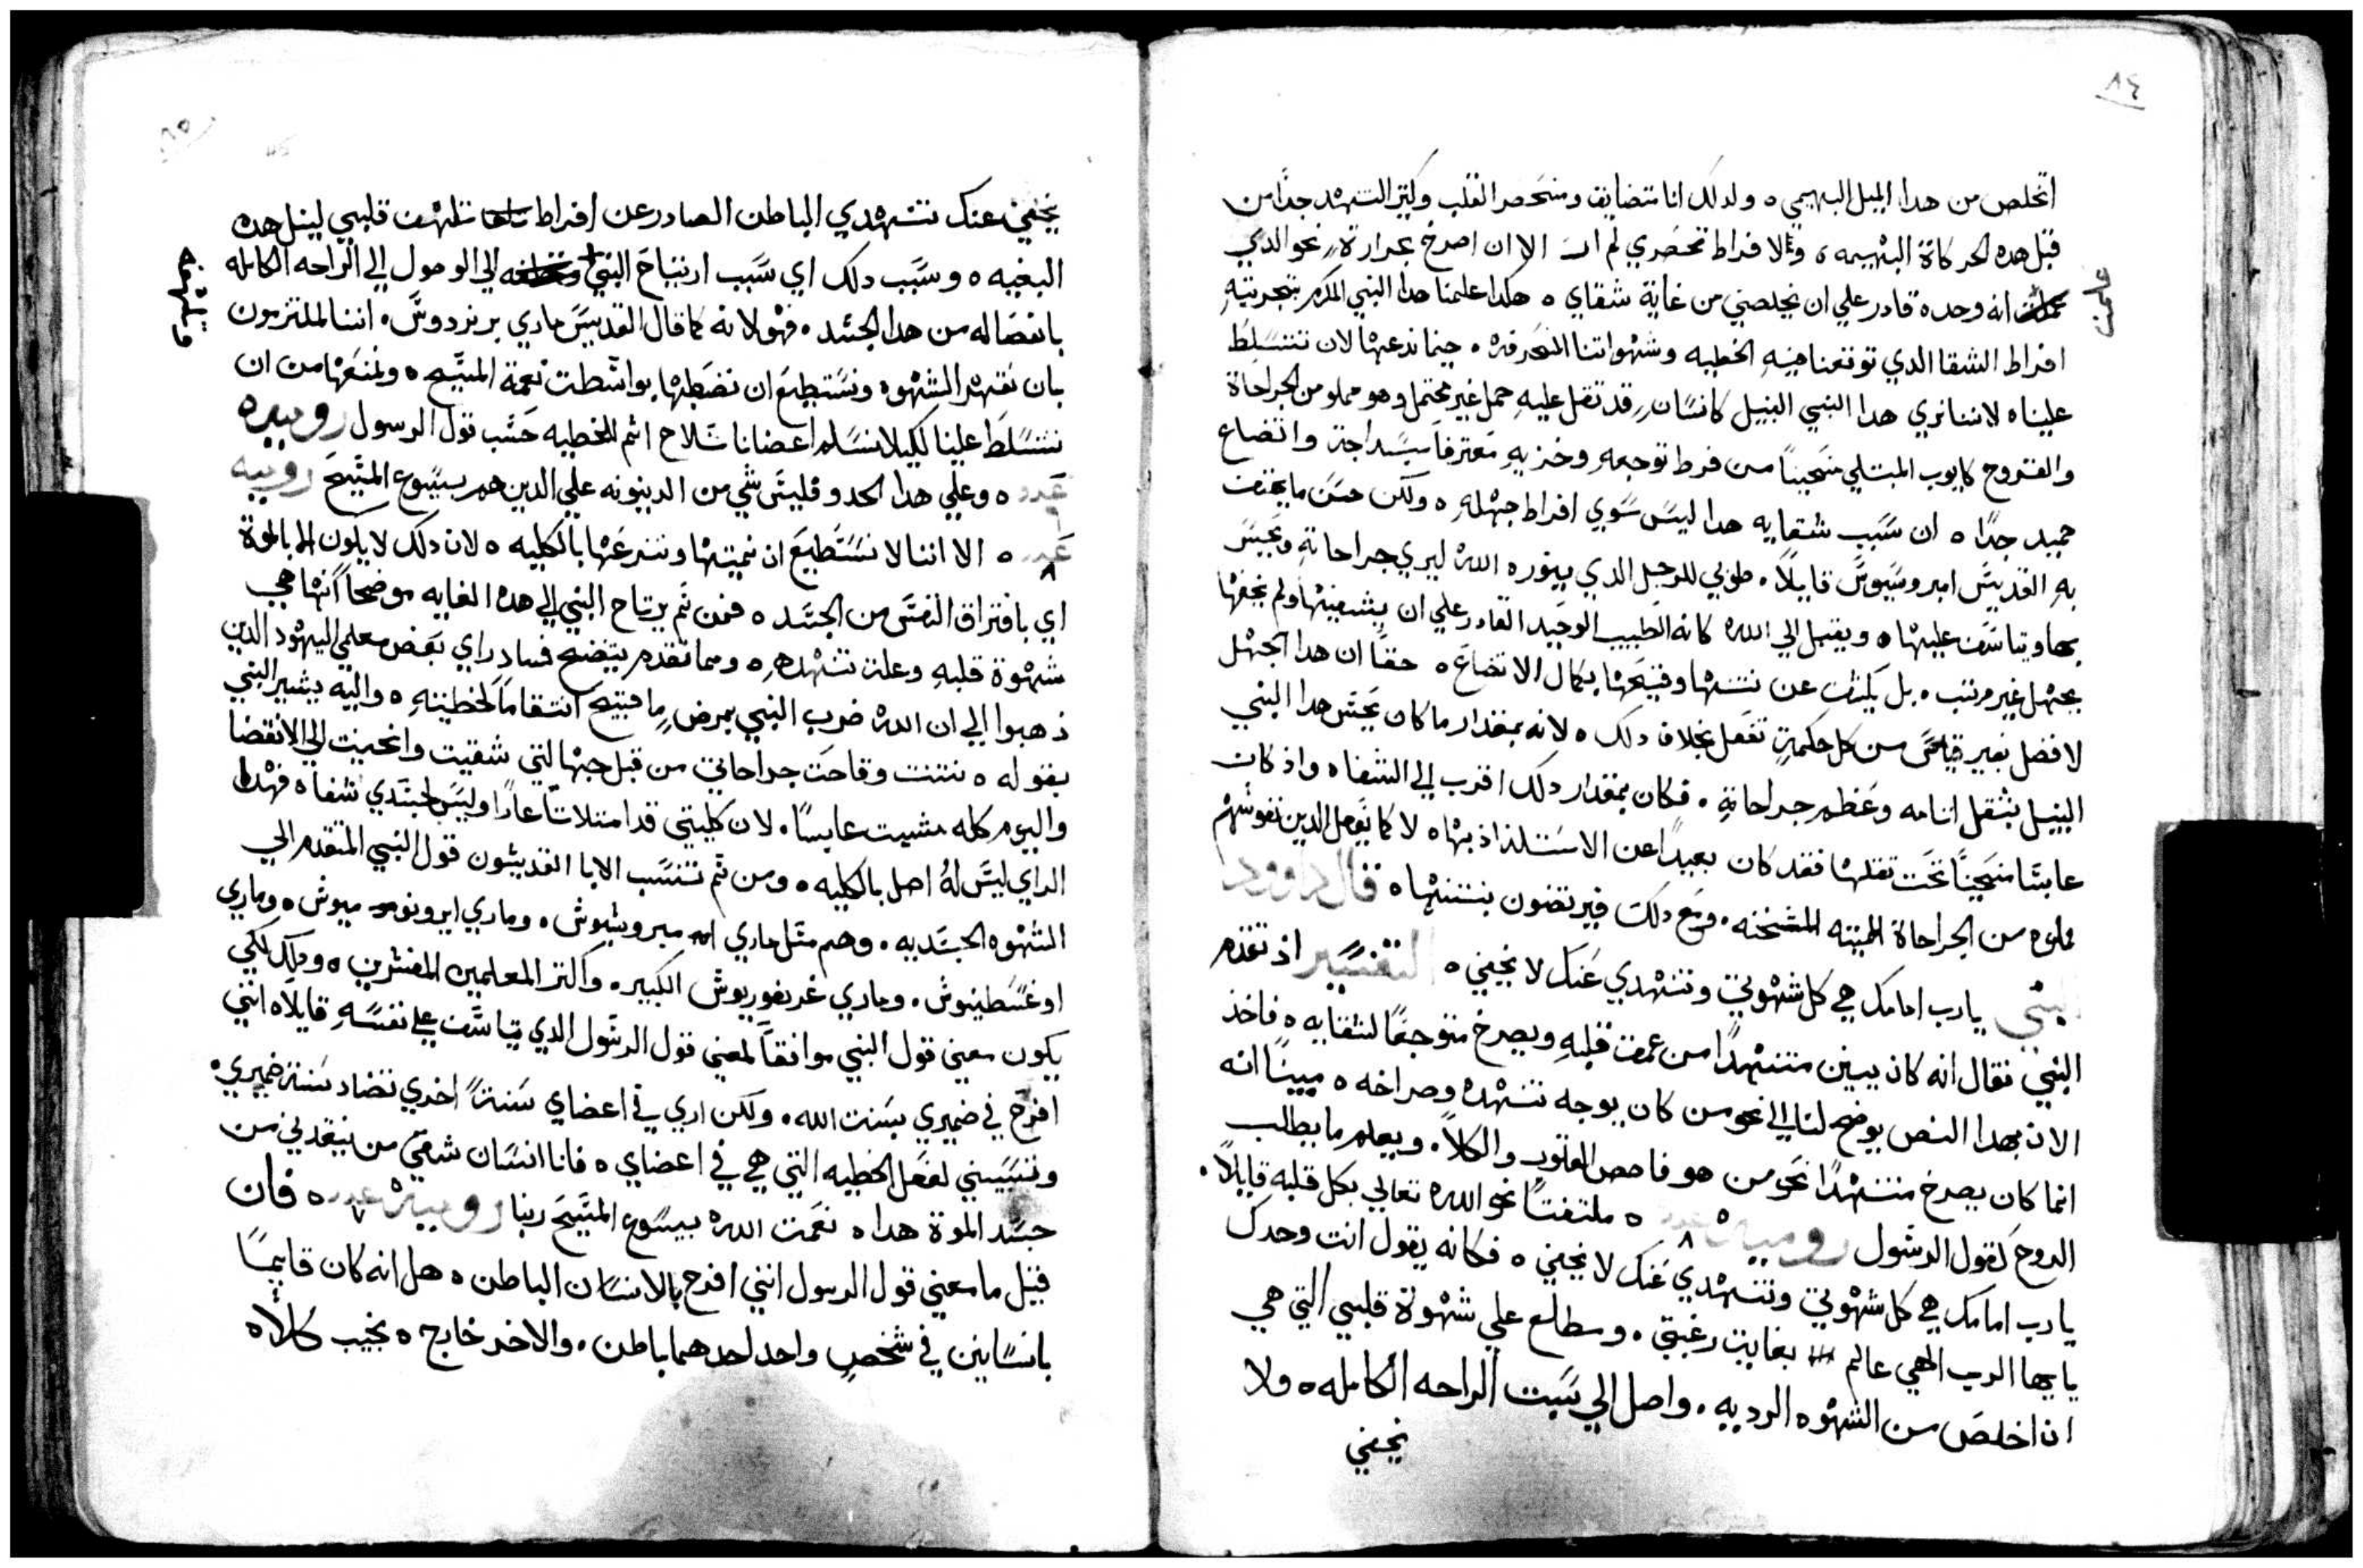 ٨٤
اتخلص من هدا الميل البهيمي ٥ ولدلك انا متضايق ومنحصر القلب وكتير التنهد جدًا من
قبل هده الحركاة البهيميه ، ولافراط تحصري لم ات الا ان اصرخ بحرارةٍ نحو الدي
علمت
انه وحده قادر علي ان يخلصني من غاية شقاي ٥ هكدا علمنا هدا النبي المكرم بتجربتهِ
افراط الشقا الدي توقعنا فيهِ الخطيه وشهواتنا المنحرفه ٠ حينما ندعها لان تتسلط
علينا ٥ لاننا نري هدا النبي النبيل كانسانٍ قد تقل عليهِ حمل غير محتمل وهو مملو من الجراحاة
والقروح كايوب المبتلي منحنيًا من فرط توجعهِ وخزيهِ معترفاً بسداجة واتضاع
حميد جدًا ٥ ان سبب شقايه هدا ليس سوي افراط جهلهِ ٥ ولكن حسن ما يهتف
بهِ القديس امبروسيوس قايلاً ٠ طوبي للرجل الدي ينوره الله ليري جراحاتهِ ويحس
بها ويتاسف عليها ٥ ويقبل الي الله كانه الطبيب الوحيد القادر علي ان يشفيها ولم يخفها
بجهل غير مرتب ٠ بل يكشف عن نتنها وقيحها بكمال الاتضاع ٥ حقاً ان هدا الجهل
لافضل بغير قياس من كل حكمةٍ تفعل بخلاف دلك ٥ لانه بمقدار ما كان يحس هدا النبي
النبيل بتقل اتامه وعظم جراحاتهِ ٠ فكان بمقدار دلك اقرب الي الشفا ٥ واذ كان
عابسًا منحنيًا تحت تقلها فقد كان بعيدًا عن الاستلذاذ بها ٥ لا كما يفعل الدين نفوسهم
مملوه من الجراحاة الميته المتخنه ٠ ومع دلك فيرتضون بنتنها ٥ قال داوود
النبي يارب امامك هي كل شهوتي وتنهدي عنك لا يخفي ٥ التفسير اذ تقدم
النبي فقال انه كان يبين متنهدًا من عمق قلبهِ ويصرخ متوجعًا لشقايه ٥ فاخذ
الان بهدا النص يوضح لنا الي نحو من كان يوجه تنهده وصراخه ٥ مبينًا انه
انما كان يصرخ متنهدًا نحو من هو فاحص القلوب والكلاَ ٠ ويعلم ما يطلب
الروح كقول الرسول روميه عدد ٨ ٥ ملتفتًا نحو الله تعالي بكل قلبه قايلاً ٠
يارب امامك هي كل شهوتي وتنهدي عنك لا يخفي ٥ فكانه يقول انت وحدك
يا ايها الرب الهي عالم بغايت رغبتي ٠ ومطلع علي شهوة قلبي التي هي
ان اخلص من الشهوه الرديه ٠ واصل الي سبت الراحه الكامله ٥ ولا
يخفي
٨٥
يخفي عنك تنهدي الباطن الصادر عن افراط تلهف قلبي لينل هده
البغيه ٥ وسبب دلك اي سبب ارتياح النبي الي الوصول الي الراحه الكامله
بانفصاله من هدا الجسد ٠ فهو لانه كما قال القديس ماري برنردوس ٠ اننا لملتزمون
بان نقهر الشهوه ونستطيع ان نضبطها بواسطت نعمة المسيح ٥ ونمنعها من ان
تتسلط علينا لكيلا نسلم اعضانا سلاح اثم للخطيه حسب قول الرسول روميه
عدد ٦ ٥ وعلي هدا الحدو فليس شي من الدينونه علي الدين هم بيسوع المسيح روميه
عدد ٨ ٥ الا اننا لا نستطيع ان نميتها وننزعها بالكليه ٥ لان دلك لا يكون الا بالموة
اي بافتراق النفس من الجسد ٥ فمن تم يرتاح النبي الي هده الغايه موضحاً انها هي
شهوة قلبهِ وعلة تنهدهِ ٥ ومما تقدم يتضح فساد راي بعض معلمي اليهود الدين
ذهبوا الي ان الله ضرب النبي بمرضٍ ما قبيح انتقاماً لخطيتهِ ٥ واليه يشير النبي
بقوله ٥ نتنت وقاحت جراحاتي من قبل جهالتي شقيت وانحنيت الي الانقضا
واليوم كله مشيت عابسًا ٠ لان كليتي قد امتلات عارًا وليس لجسدي شفا ٥ فهدا
الراي ليس لهُ اصل بالكليه ٥ ومن تم تنسب الابا القديسون قول النبي المتقدم الي
الشهوه الجسديه ٠ وهم متل ماري امبروسيوس ٠ وماري ايرونوميوس ٥ وماري
اوغسطينوس ٠ وماري غريغوريوس الكبير ٠ واكتر المعلمين المفسرين ٥ ودلك لكي
يكون معني قول النبي موافقاً لمعني قول الرسول الدي يتاسف علي نفسهِ قايلاً ٥ انني
افرح في ضميري بسنت الله ٠ ولكن اري في اعضاي سنةً اخري تضاد سنة ضميري ٠
وتسبيني لفعل الخطيه التي هي في اعضاي ٥ فانا انسان شقي من ينقدني من
جسد الموة هدا ٥ نعمت الله بيسوع المسيح ربنا روميه عدد ٧ ٥ فان
قيل ما معني قول الرسول انني افرح بالانسان الباطن ٥ هل انه كان قايمًا
بانسانين في شخصٍ واحد احدهما باطن ٠ والاخر خارج ٥ نجيب كلاَ ٥